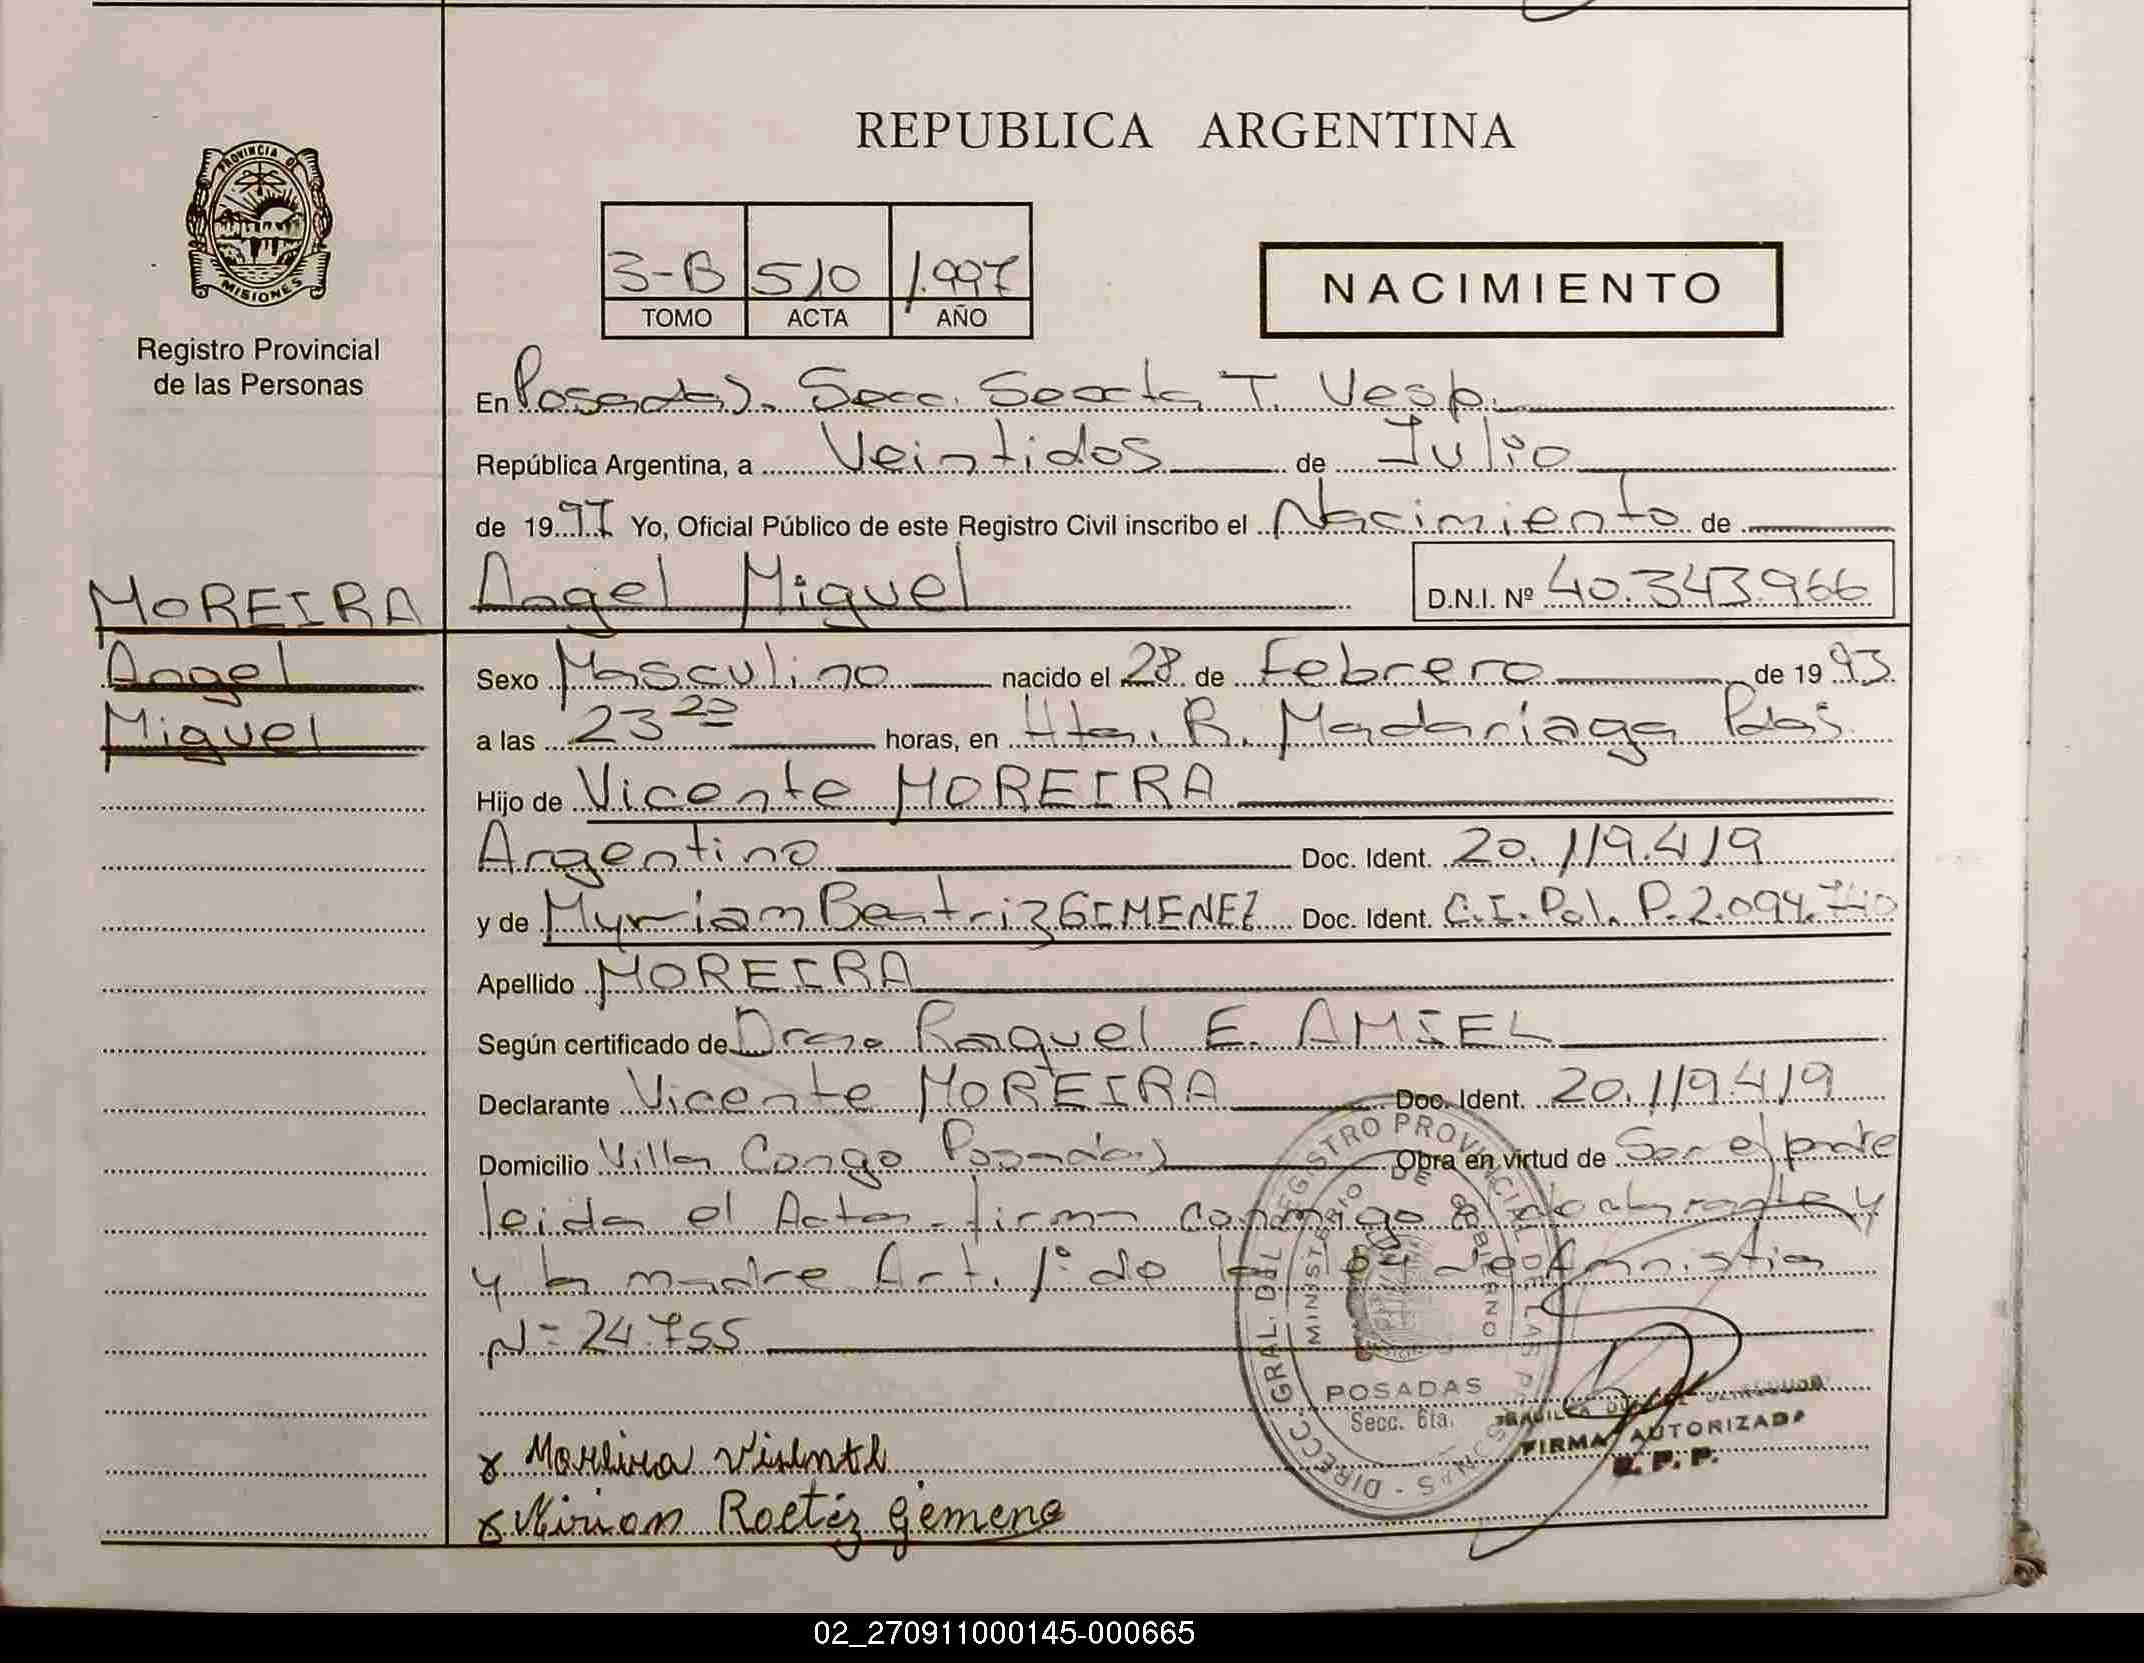 REPUBLICA ARGENTINA
PROVINCIA DE MISIONES
Registro Provincial
de las Personas
3-B 510 1.997
TOMO ACTA AÑO
NACIMIENTO
En Posadas, Secc. Sexta T. Vesp.
República Argentina, a Veintidos de Julio
de 1997 Yo, Oficial Público de este Registro Civil inscribo el Nacimiento de
MOREIRA
Angel
Miguel
Angel Miguel D.N.I. Nº 40.343.966
Sexo Masculino nacido el 28 de Febrero de 1993
a las 23 20 horas, en Htal. R. Madariaga Pdas.
Hijo de Vicente MOREIRA
Argentino Doc. Ident. 20.119.419
y de Myriam Beatriz GIMENEZ Doc. Ident. C.I. Pol. P. 2.094.740
Apellido MOREIRA
Según certificado de Dra. Raquel E. AMIEL
Declarante Vicente MOREIRA Doc. Ident. 20.119.419
Domicilio Villa Congo Posadas Obra en virtud de Ser el padre
leida el Acta firma conmigo el declarante y
y la madre Art. 1º de la Ley de Amnistia
Nº 24.755
DIRECC. GRAL. DEL REGISTRO PROVINCIAL DE LAS PERSONAS
MINISTERIO DE GOBIERNO
POSADAS
Secc. 6ta.
FIRMA AUTORIZADA
R. P. P.
x Moreira Visente
x Mirian Baetiz Gemene
02_270911000145-000665